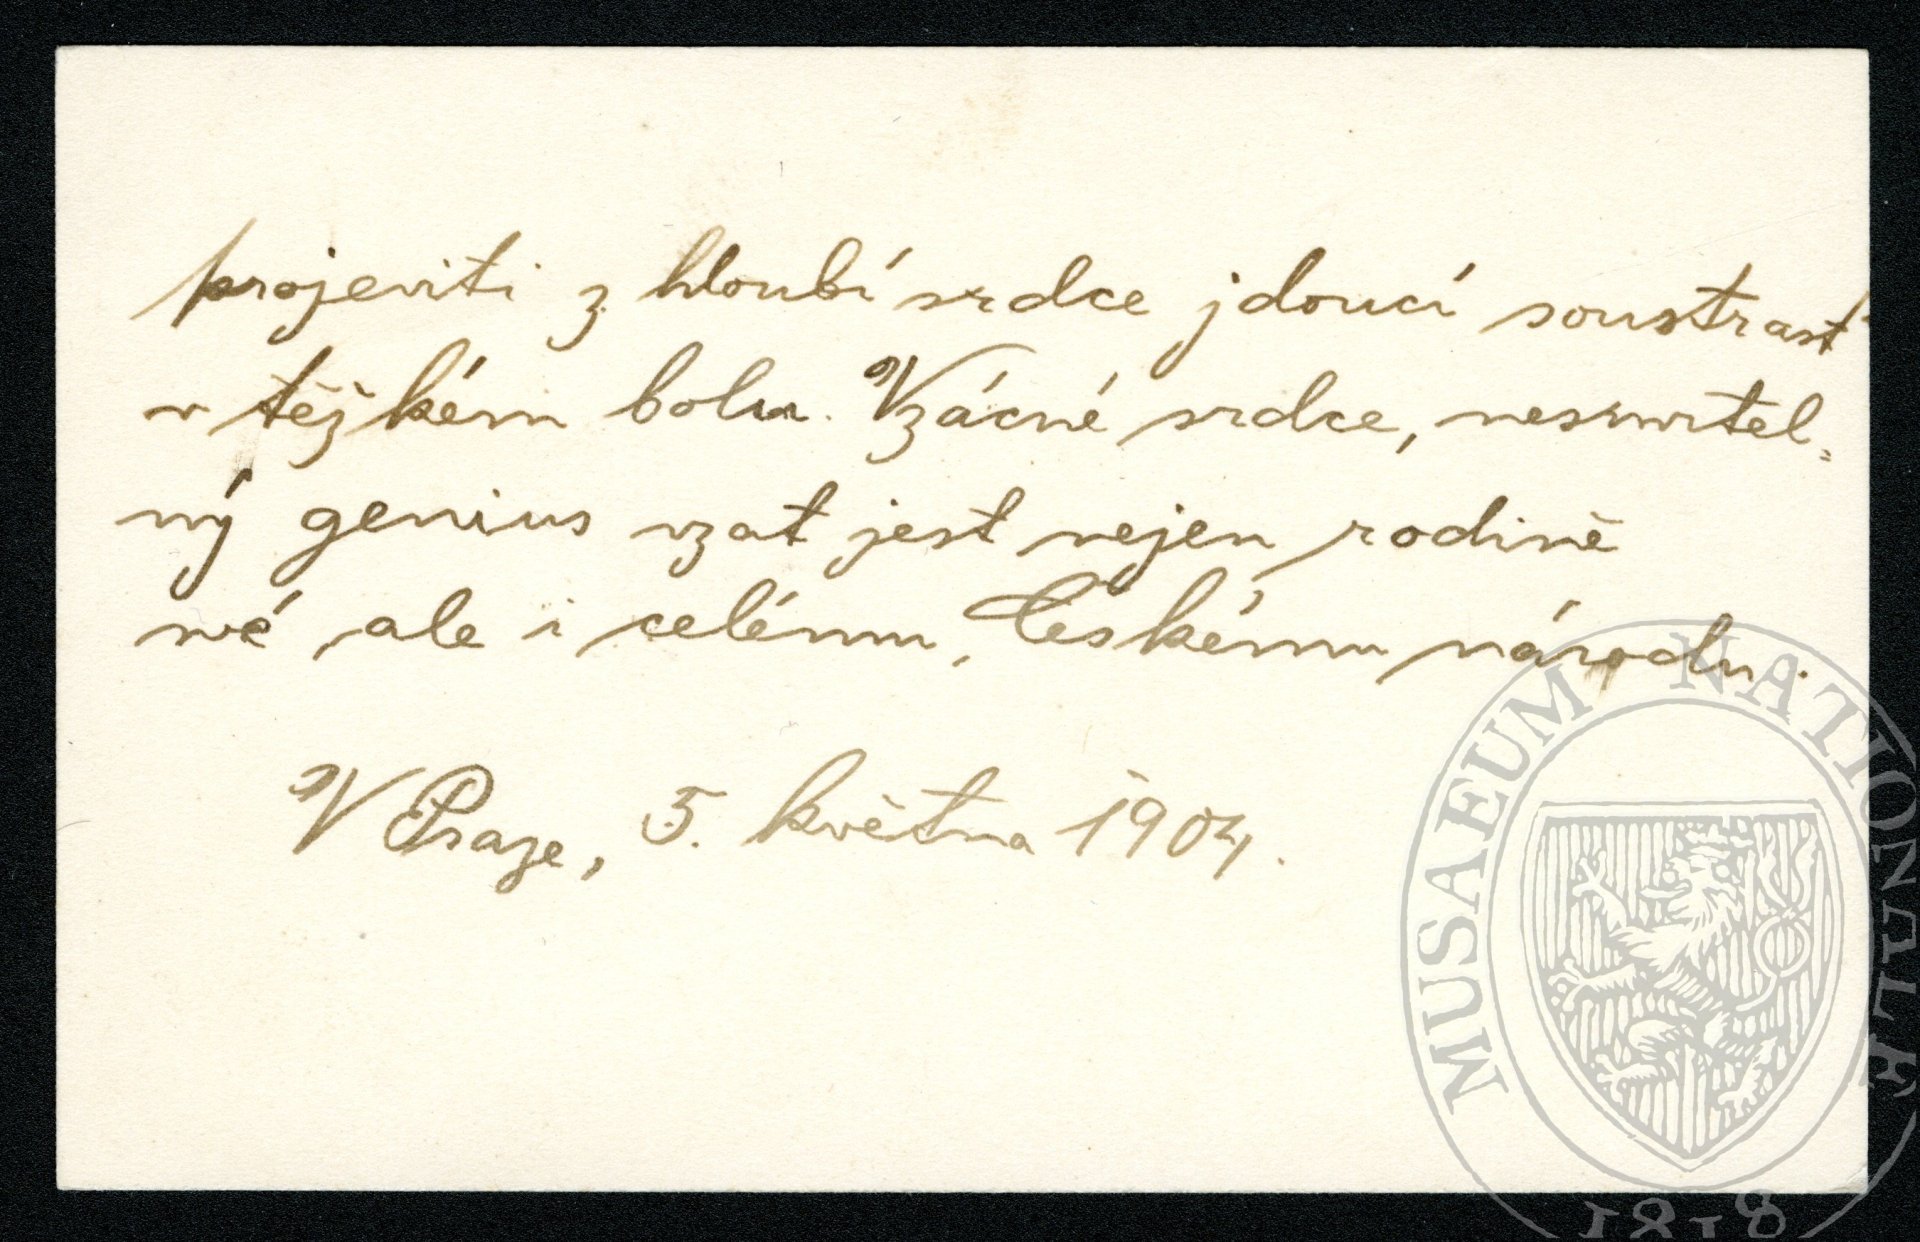 projeviti z hloubí srdce jdoucí soustrast
v těžkém bolu. Vzácné srdce, nesmrtel-
ný genius vzat jest nejen rodině
své ale i celému, českému národu.
V Praze, 5. května 1904.
MUSAEUM NATIONALE
1818